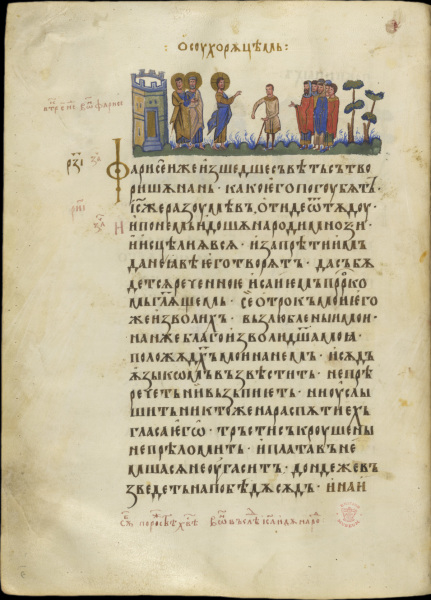 О соухорѫцѣмь:
Фарисеи же изшедше съвѣть сътво
ришѧ нань · како ѥго погоубѧтъ ·
І҃с же разоумѣвъ, отиде ѿтѫдоу ·
и по немь идошѧ народи мнози ·
и исцѣли ѧ всѧ · и запрѣти имъ
да не ꙗвѣ ѥго творѧтъ · да събѫ
детсѧ реченное исаиемь прⷪрко
мь гл҃ѧщемь · се отрокъ мои ѥго
же изволихъ · възлюбленыи мои ·
на нже благоизволи дш҃а моꙗ ·
положѫ дх҃ъ мои на немь · и сѫд
ѧзыкѡмъ възвѣстить · не прѣ
речеть ни възъпиеть · ни оуслы
шить никтоже на распѫтиехъ
гласа ѥгѡ · тръсти съкроушены
не прѣломить · и плата въне
мшасѧ не оугаситъ · дондеже въ
зведеть на побѣдѫ сѫдъ · и на и